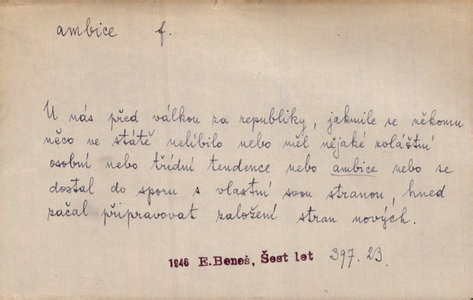 ambice f.
U nás před válkou za republiky, jakmile se někomu
něco ve státě nelíbilo nebo měl nějaké zvláštní
osobní nebo třídní tendence nebo ambice nebo se
dostal do sporu s vlastní svou stranou, hned
začal připravovat založení stran nových.
1946 E.Beneš, Šest let 397.23.